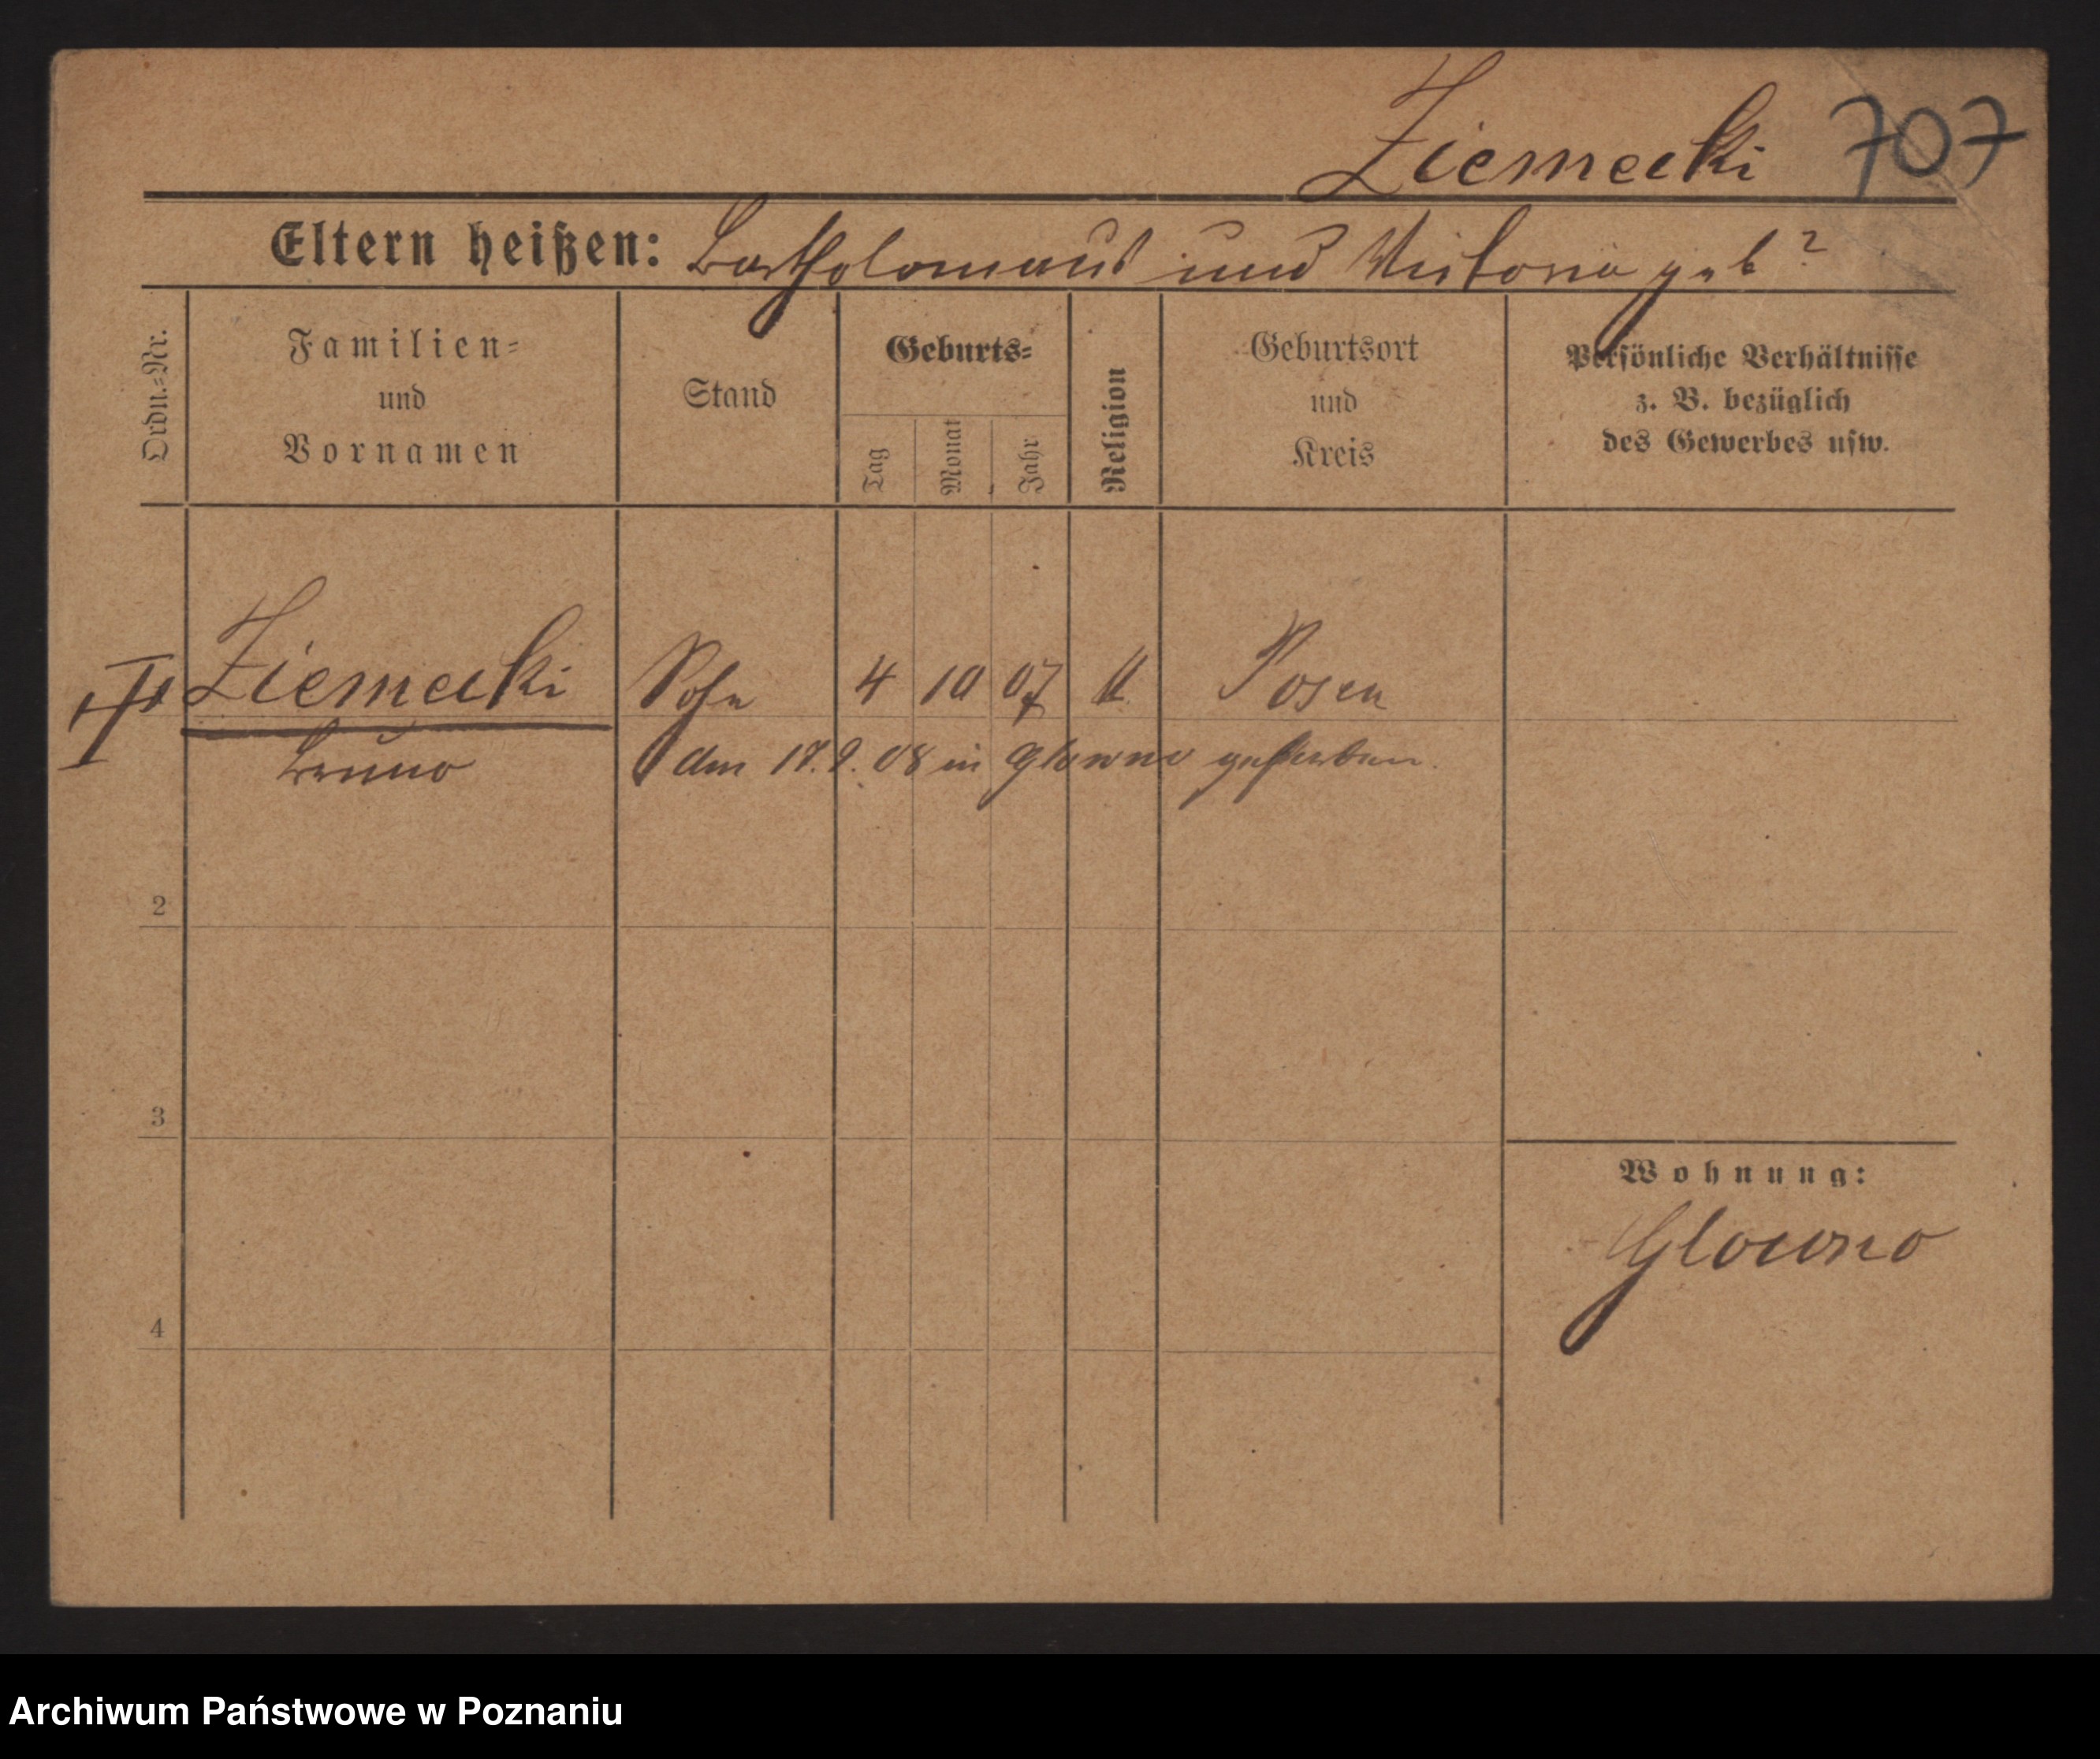 Ziemecki 707
Eltern heißen: Bartholomaus und Victoria geb?
Ordn.=Nr.
Familien=
und
Vornamen
Stand
Geburts=
Tag
Monat
Jahr
Religion
Geburtsort
und
Kreis
Persönliche Verhältnisse
z. B. bezüglich
des Gewerbes usw.
Ziemecki Sohn 4 10 07 k Posen
Bruno den 17.9.08 in Glowno gestorben.
2
3
4
Wohnung:
Glowno
Archiwum Państwowe w Poznaniu